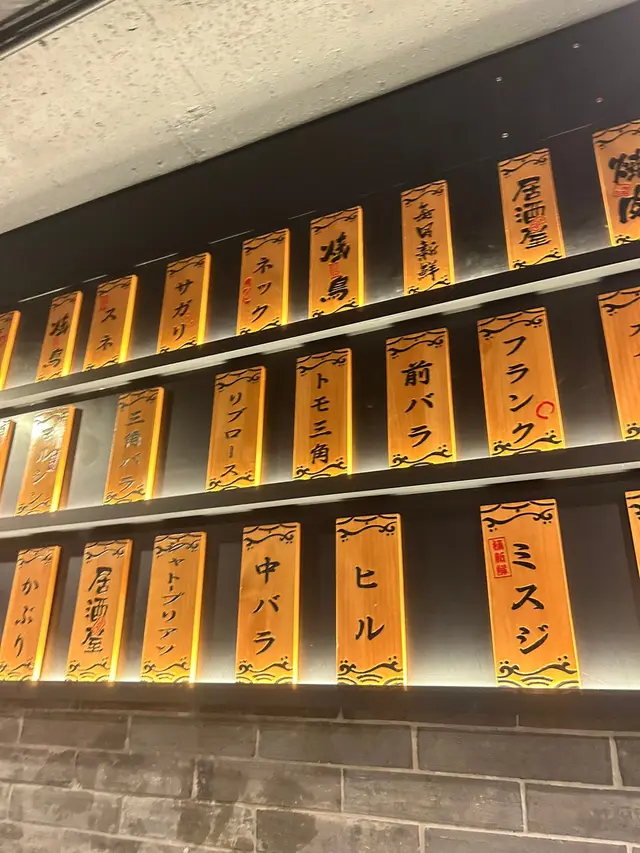 焼鳥
スネ
サガリ
ネック
焼鳥
毎日新鮮
居酒屋
焼肉
三角バラ
リブロース
トモ三角
前バラ
フランク
かぶり
居酒屋
シャトーブリアン
中バラ
ヒル
ミスジ